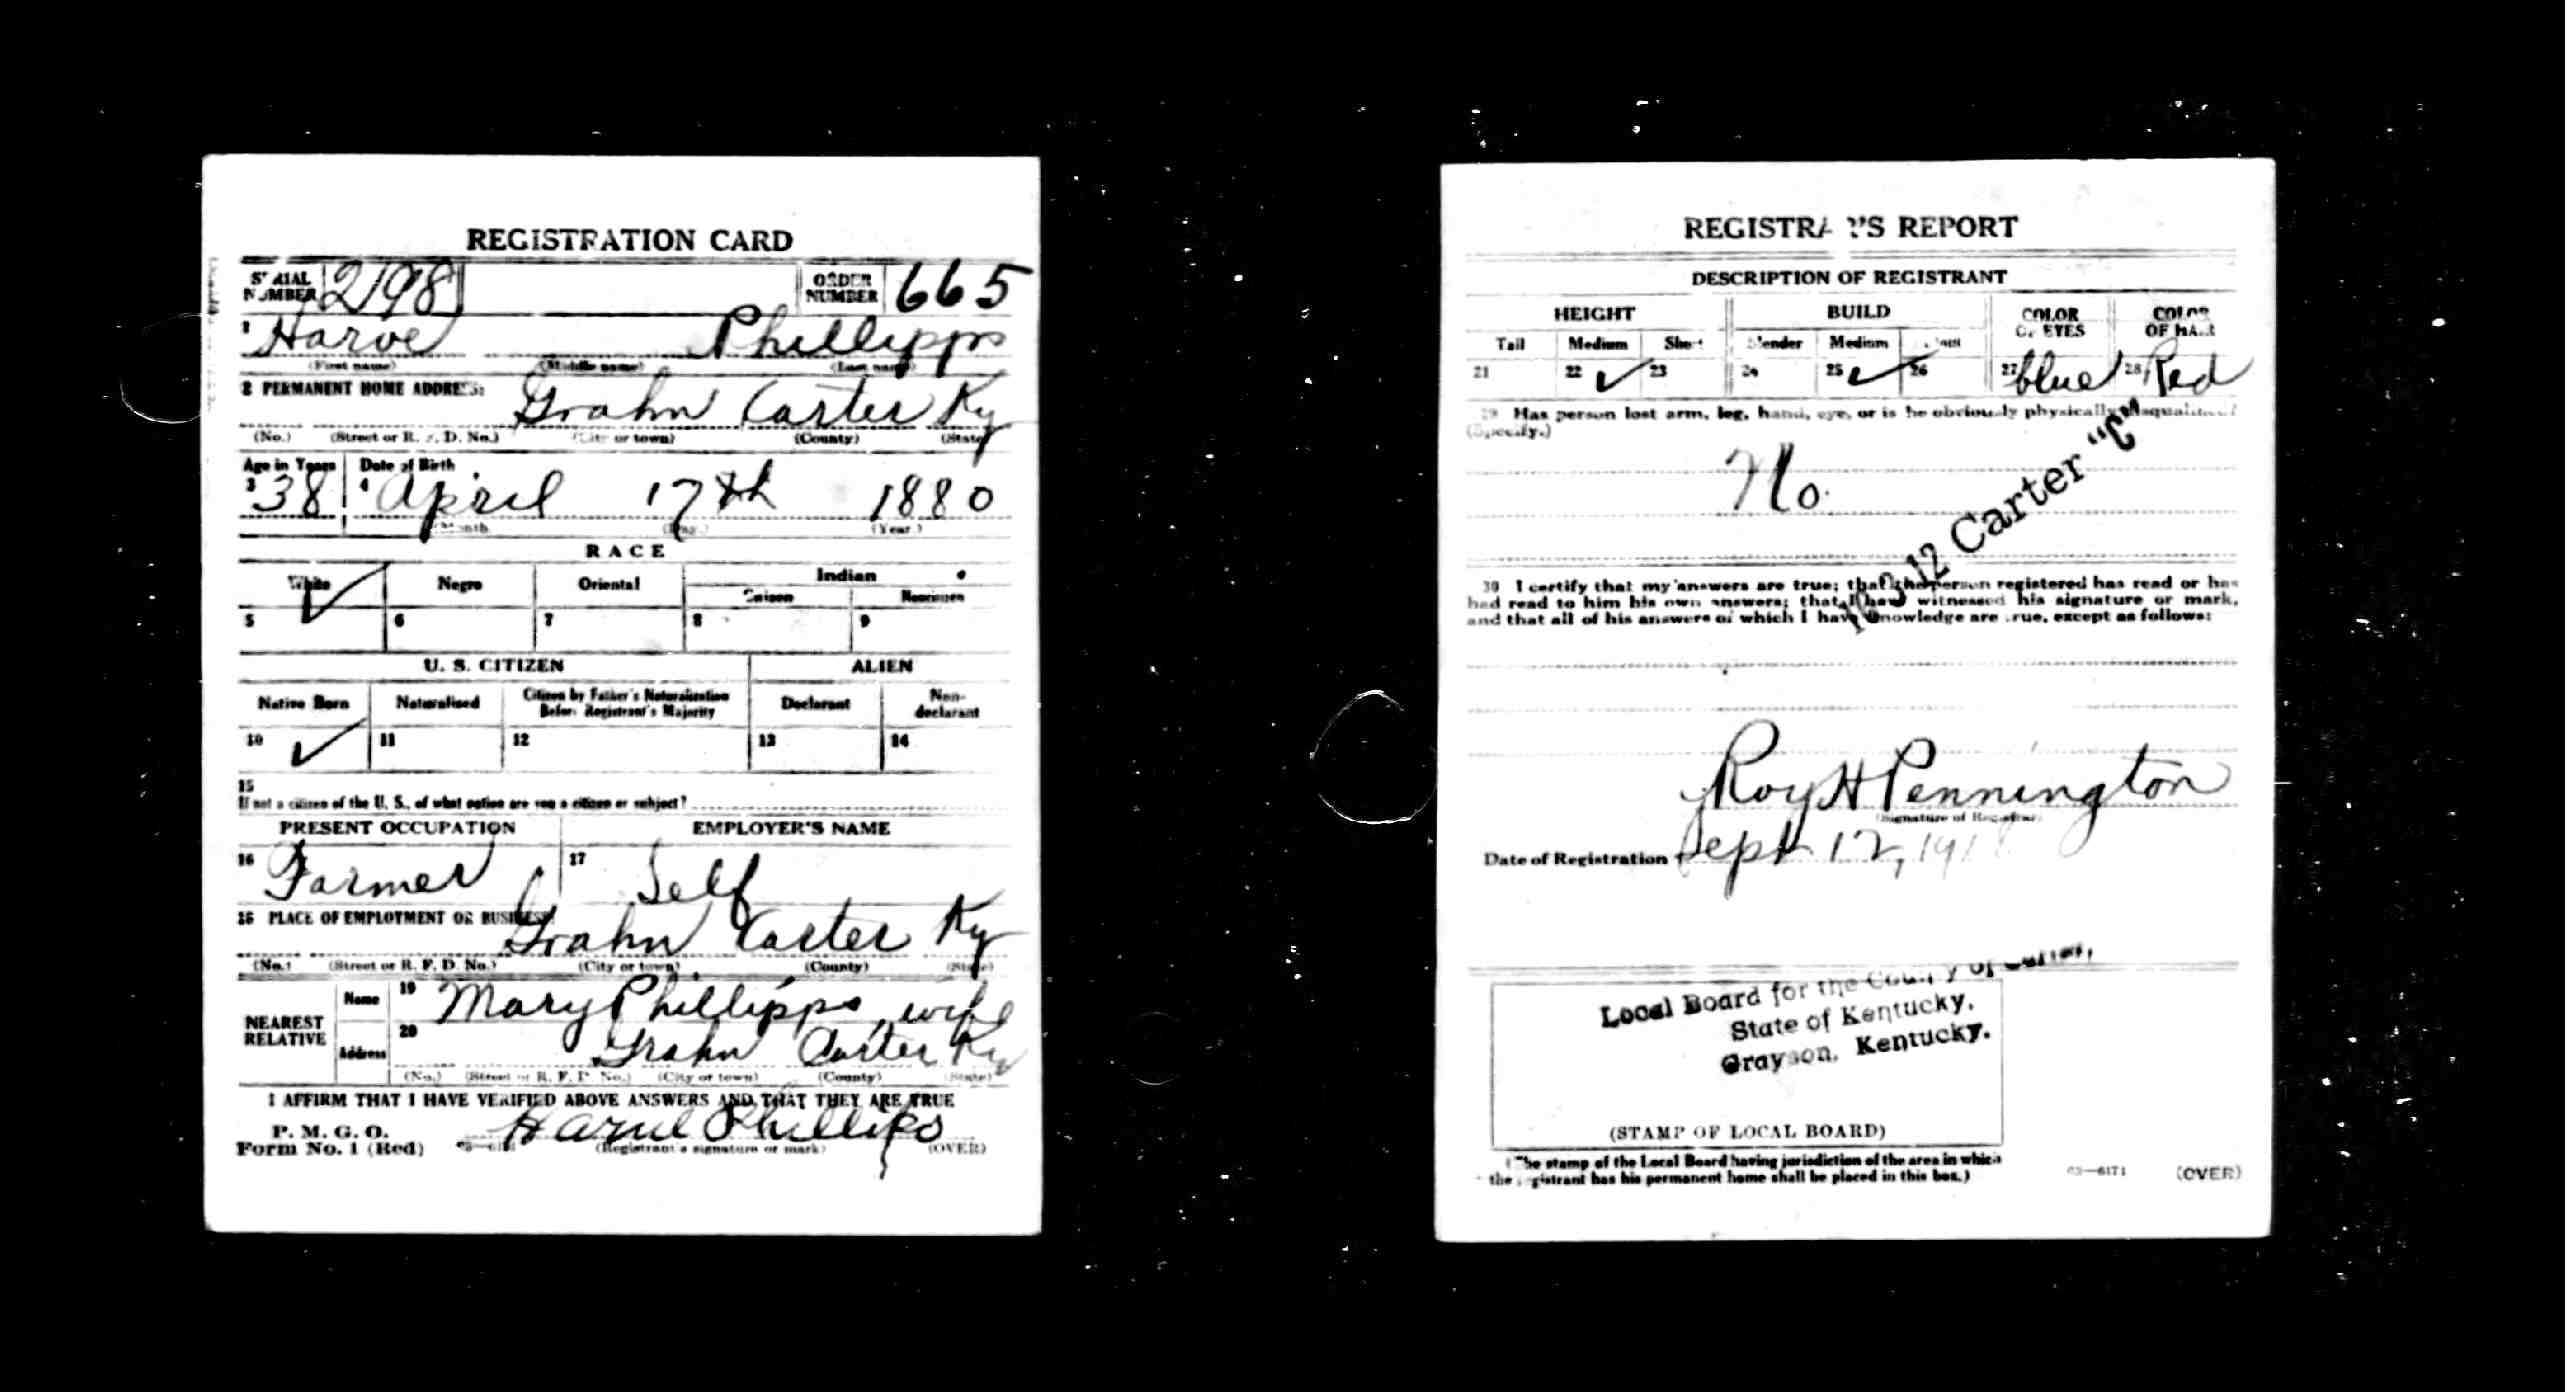 REGISTRATION CARD
SERIAL NUMBER 2198 ORDER NUMBER 665
1 Harve Phillipps
(First name) (Middle name) (Last name)
2 PERMANENT HOME ADDRESS: Grahn Carter Ky
(No.) (Street or R. F. D. No.) (City or town) (County) (State)
Age in Years Date of Birth
3 38 4 April 17th 1880
(Month) (Day.) (Year.)
RACE
White Negro Oriental Indian
Citizen Noncitizen
5 6 7 8 9
U. S. CITIZEN ALIEN
Native Born Naturalized Citizen by Father's Naturalization Before Registrant's Majority Declarant Non-declarant
10 11 12 13 14
15
If not a citizen of the U. S., of what nation are you a citizen or subject?
PRESENT OCCUPATION EMPLOYER'S NAME
16 Farmer 17 Self
18 PLACE OF EMPLOYMENT OR BUSINESS: Grahn Carter Ky
(No.) (Street or R. F. D. No.) (City or town) (County) (State)
NEAREST RELATIVE Name 19 Mary Phillipps, wife
Address 20 Grahn Carter Ky
(No.) (Street or R. F. D. No.) (City or town) (County) (State)
I AFFIRM THAT I HAVE VERIFIED ABOVE ANSWERS AND THAT THEY ARE TRUE
P. M. G. O.
Form No. 1 (Red) Phillips
(Registrant's signature or mark) (OVER)
REGISTRAR'S REPORT
DESCRIPTION OF REGISTRANT
HEIGHT BUILD COLOR OF EYES COLOR OF HAIR
Tall Medium Short Slender Medium Stout
21 22 23 24 25 26 27 blue 28 Red
29 Has person lost arm, leg, hand, eye, or is he obviously physically disqualified?
(Specify.)
No.
12 Carter "C"
30 I certify that my answers are true; that the person registered has read or has
had read to him his own answers; that I have witnessed his signature or mark,
and that all of his answers of which I have knowledge are true, except as follows:
Roy H Pennington
(Signature of Registrar)
Date of Registration Sept 12, 191
Local Board for the County of Carter,
State of Kentucky,
Grayson, Kentucky.
(STAMP OF LOCAL BOARD)
(The stamp of the Local Board having jurisdiction of the area in which
the registrant has his permanent home shall be placed in this box.)
03—6171 (OVER)